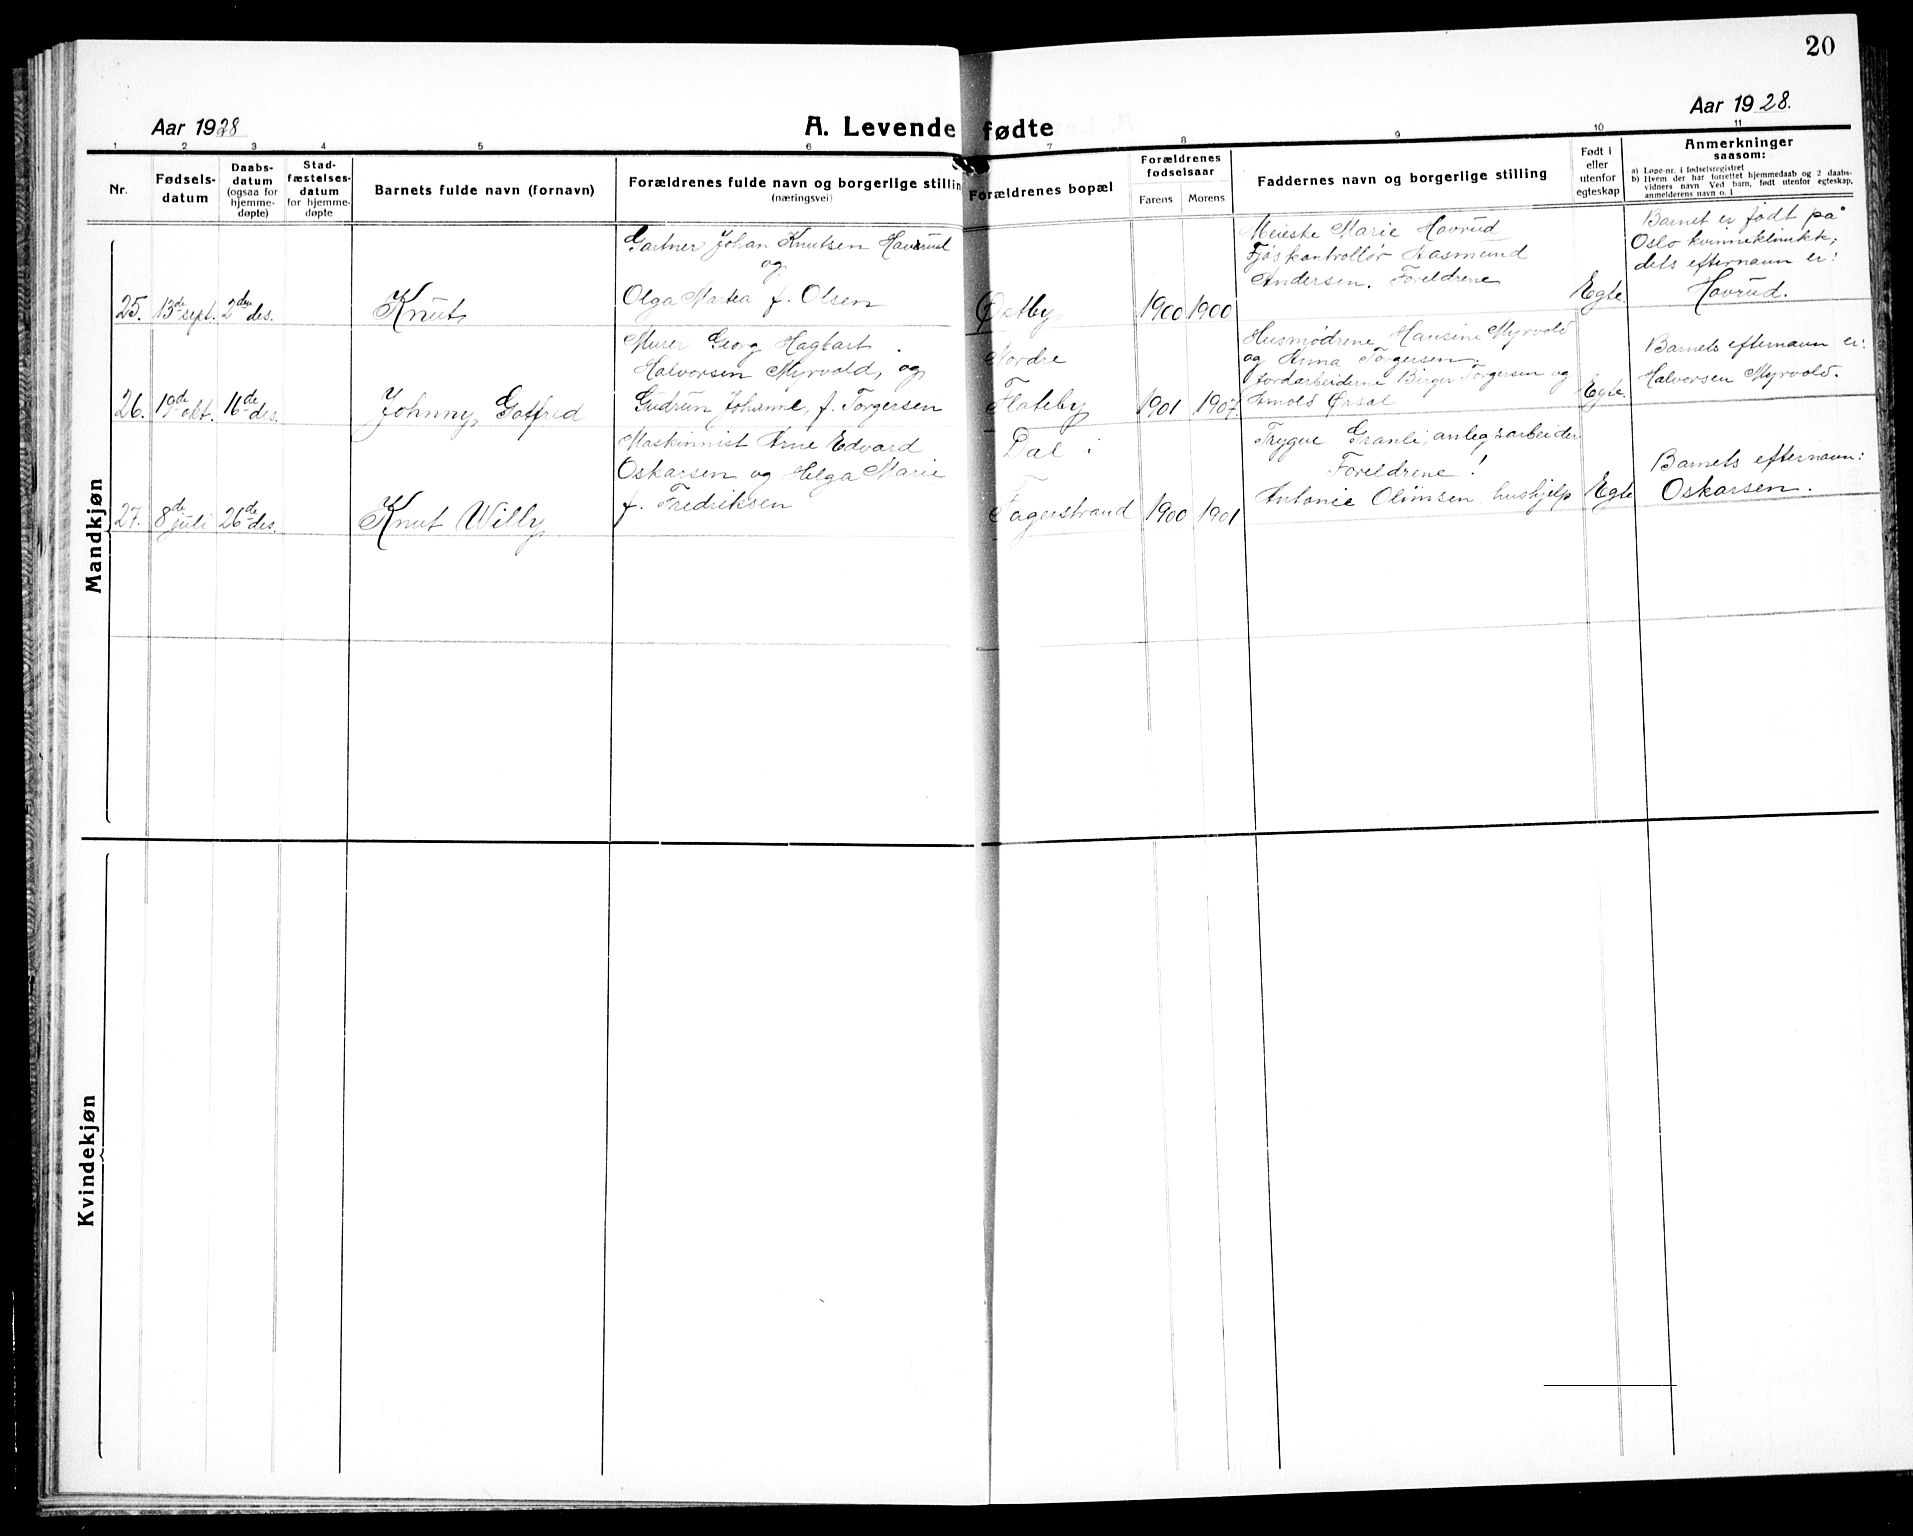 20
Aar 1928
A. Levende fødte
Aar 1928.
1 2 3 4 5 6 7 8 9 10 11
Nr.
Fødsels-
datum
Daabs-
datum
(ogsaa for
hjemme-
døpte)
Stad-
fæstelses-
datum
for hjemme-
døpte
Barnets fulde navn (fornavn)
Forældrenes fulde navn og borgerlige stillin
(næringsvei)
Forældrenes bopæl
Forældrenes
fødselsaar
Farens Morens
Faddernes navn og borgerlige stilling
Født i
eller
utenfor
egteskap
Anmerkninger
saasom:
a) Løpe-nr. i fødselsregistret
b) Hvem der har forrettet hjemmedaab og 2 daabs-
vidners navn Ved barn, født utenfor egteskap,
anmelderens navn o. l
Mandkjøn
25. 13de sept. 2den des.
Knut
Gartner Johan Knutsen Havrud
og
Olga Martea f. Olsen
Østby
1900 1900
Meieste Marie Hovrud
Fjøskontrollør Aasmund
Andersen. Foreldrene
Egte.
Barnet er født på
Oslo kvinneklinikk;
dets efternavn er:
Hovrud.
26. 19de okt. 16de des.
Johnny Gotfred
Murer Georg Hagbart
Halvorsen Myrvold, og
Gudrun Johanne, f. Torgersen
Nordre
Flateby
1901 1907
Husmødrene Hansine Myrvold
og Anna Torgersen.
Jordarbeiderne Birger Torgersen og
Arnold Ørsal
Egte.
Barnets efternavn er:
Halvorsen Myrvold.
27. 8de juli 26de des.
Knut Willy
Maskinnist Arne Edvard
Oskarsen og Helga Marie
f. Fredriksen
Dal i
Fagerstrand
1900 1901
Trygve Granli, anlegsarbeider
Foreldrene!
Antonie Olimsen, hushjelp
Egte
Barnets efternavn:
Oskarsen.
Kvindekjøn